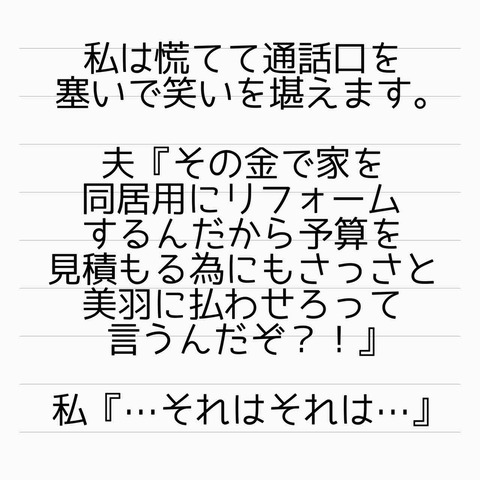 私は慌てて通話口を
塞いで笑いを堪えます。
夫『その金で家を
同居用にリフォーム
するんだから予算を
見積もる為にもさっさと
美羽に払わせろって
言うんだぞ？！』
私『…それはそれは…』